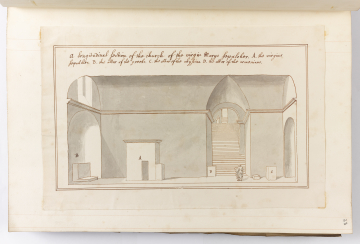 A longitudinal section of the church of the virgin Marys sepulcher. A. the virgins
sepulcher. B. the altar of the C. the altar of the D. the altar of the